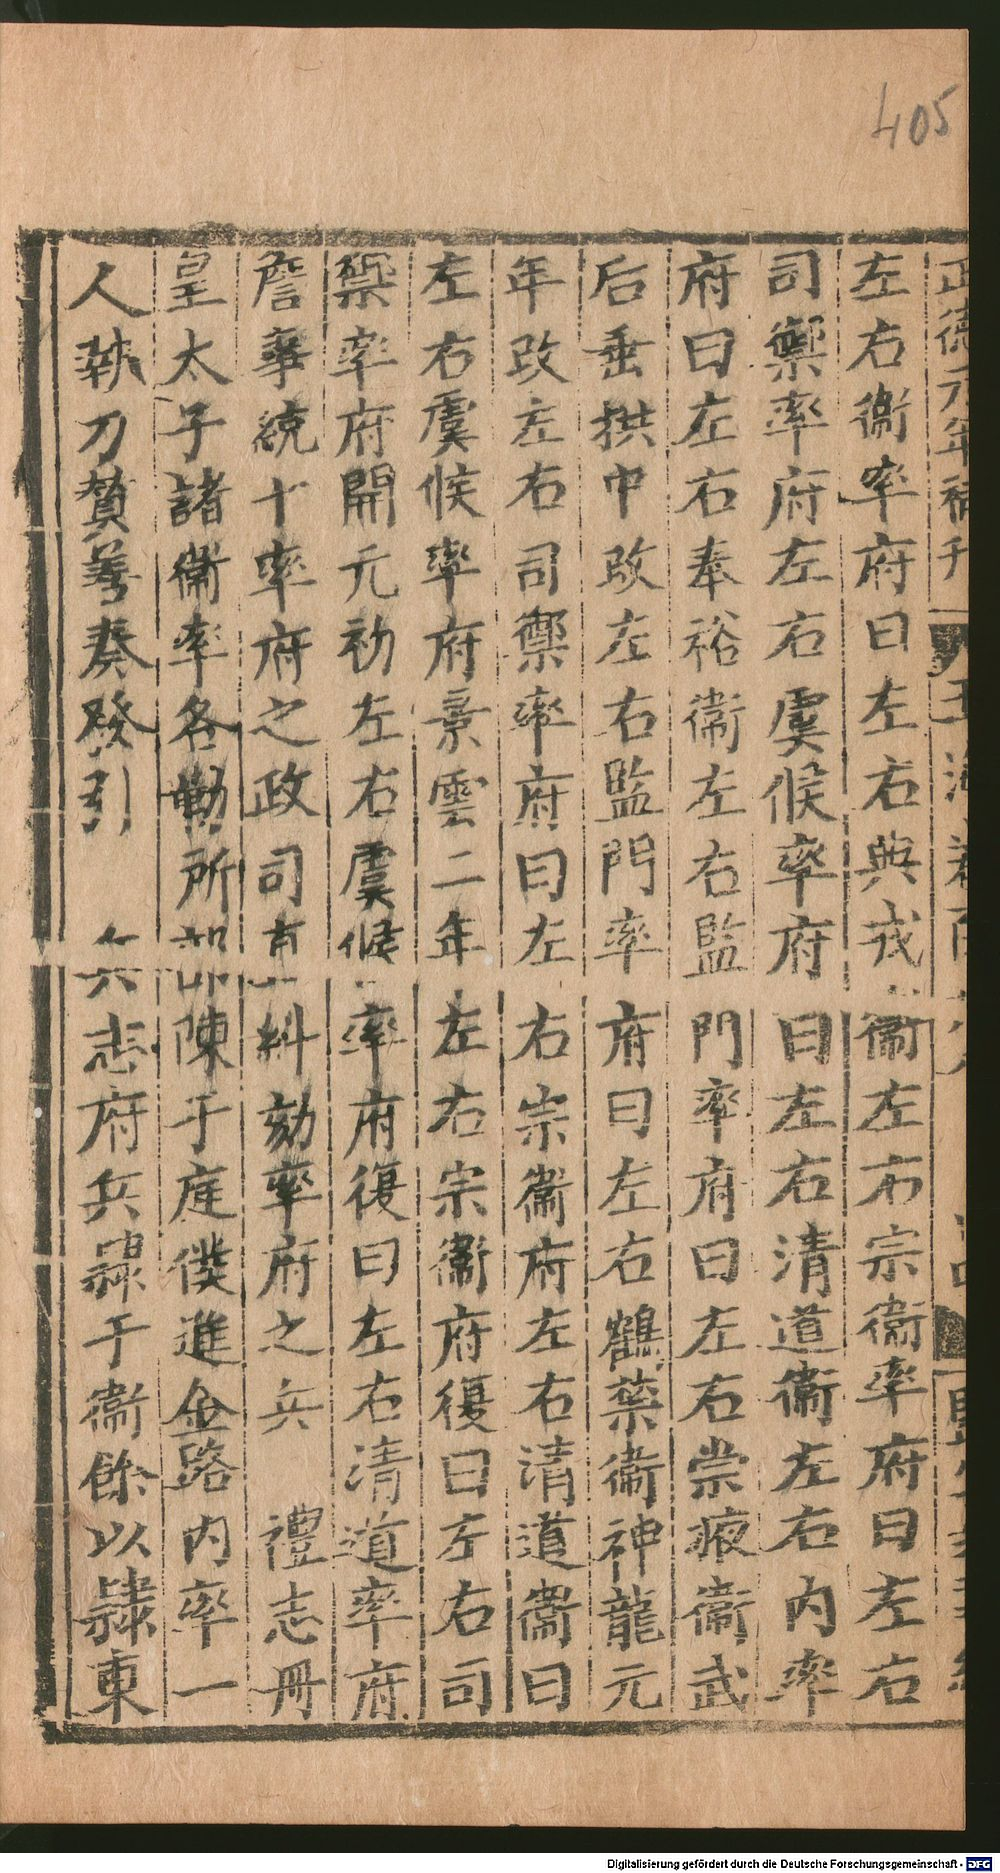 405
正德元年補刊 玉海卷百
左右衞率府曰左右典戎衞左右宗衞率府曰左右
司禦率府左右虞候率府曰左右清道衞左右內率
府曰左右奉裕衞左右監門率府曰左右崇掖衞武
后垂拱中改左右監門率府曰左右鶴禁衞神龍元
年改左右司禦率府曰左右宗衞府左右清道衞曰
左右虞候率府景雲二年左右宗衞府復曰左右司
禦率府開元初左右虞候率府復曰左右清道率府
詹事統十率府之政司直糾劾率府之兵 禮志冊
皇太子諸衞率各勒所部陳于庭僕進金路內率一
人執刀贊善奏發引 兵志府兵隷于衞餘以隸東
Digitalisierung gefördert durch die Deutsche Forschungsgemeinschaft - DFG